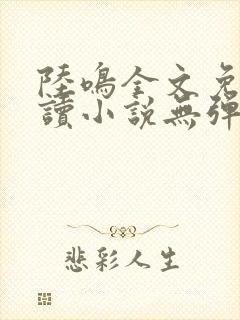 陸鳴全文免
讀小說無彈
悲彩人生